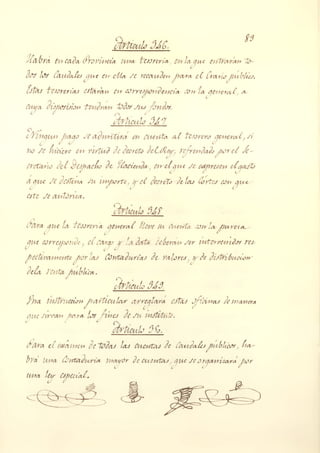 89
Articulo 346.
Habrá en cada Provincia una tesorería, en la que entrarán to-
dos los Caudales que en ella se recauden para el Erario público.
Estas tesorerías estarán en correspondencia con la general, a
cuya disposicion tendrán todos sus fondos.
Articulo 347.
Ningun pago se admitirá en cuenta al tesorero general, si
no se hiciere en virtud de decreto del Rey, refrendado por el Se-
cretario del Despacho de Hacienda, en el que se expresen el gasto
á que se destina su importe, y el decreto de las Córtes con que
este se autoriza.
Articulo 348.
Para que la tesorería general lleve su cuenta con la pureza
que corresponde, el cargo y la data deberán ser intervenidos res-
pectivamente por las Contadurías de valores, y de distribucion
de la renta pública.
Articulo 349.
Una instruccion particular arreglará estas oficinas de manera
que sirvan para los fines de su instituto.
Articulo 350.
Para el exámen de todas las cuentas de Caudales públicos, ha-
brá una Contaduria mayor de cuentas, que se organizará por
una ley especial.